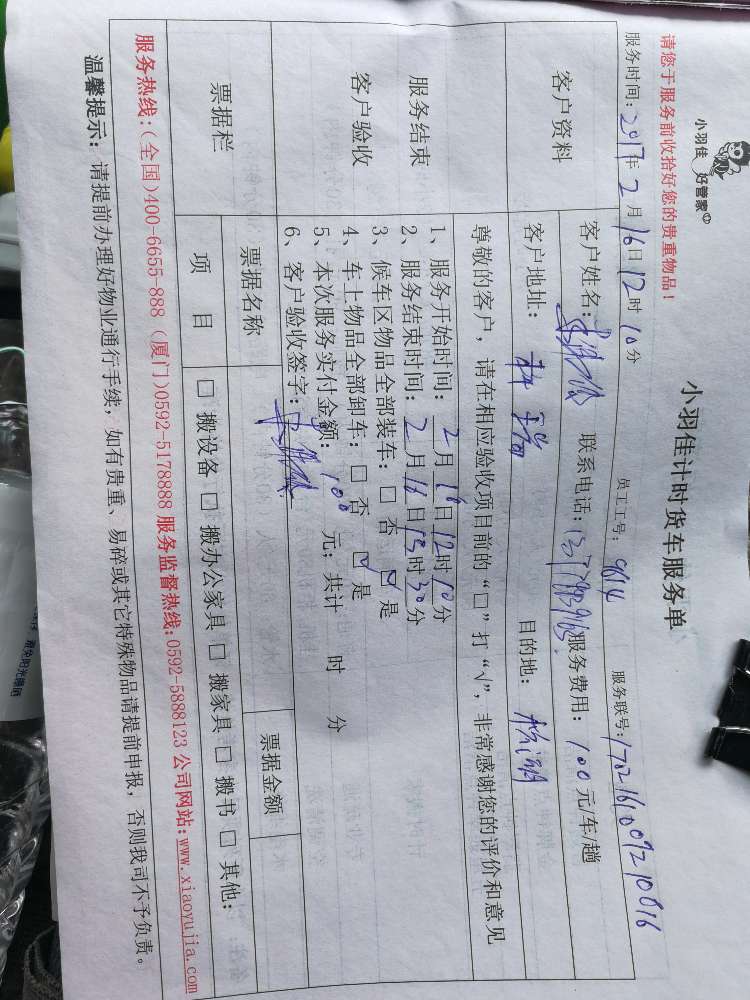 小羽佳 好管家
小羽佳计时货车服务单
请您于服务前收拾好您的贵重物品！
服务时间：2017年2月16日12时10分 员工工号：9614 服务联号：
客户资料
客户姓名： 联系电话： 服务费用：100元/车/趟
客户地址： 目的地：
服务结束
客户验收
尊敬的客户，请在相应验收项目前的“□”打“√”，非常感谢您的评价和意见
1、服务开始时间：2月16日12时10分
2、服务结束时间：2月16日13时30分
3、候车区物品全部装车：□ 否 ☑ 是
4、车上物品全部卸车：□ 否 ☑ 是
5、本次服务实付金额：100元；共计 时 分
6、客户验收签字：
票据栏
票据名称 票据金额
项 目
□ 搬设备 □ 搬办公家具 □ 搬家具 □ 搬书 □ 其他：
服务热线：(全国)400-6655-888 (厦门)0592-5178888 服务监督热线：0592-5888123 公司网站：www.xiaoyujia.com
温馨提示：请提前办理好物业通行手续，如有贵重、易碎或其它特殊物品请提前申报，否则我司不予负责。